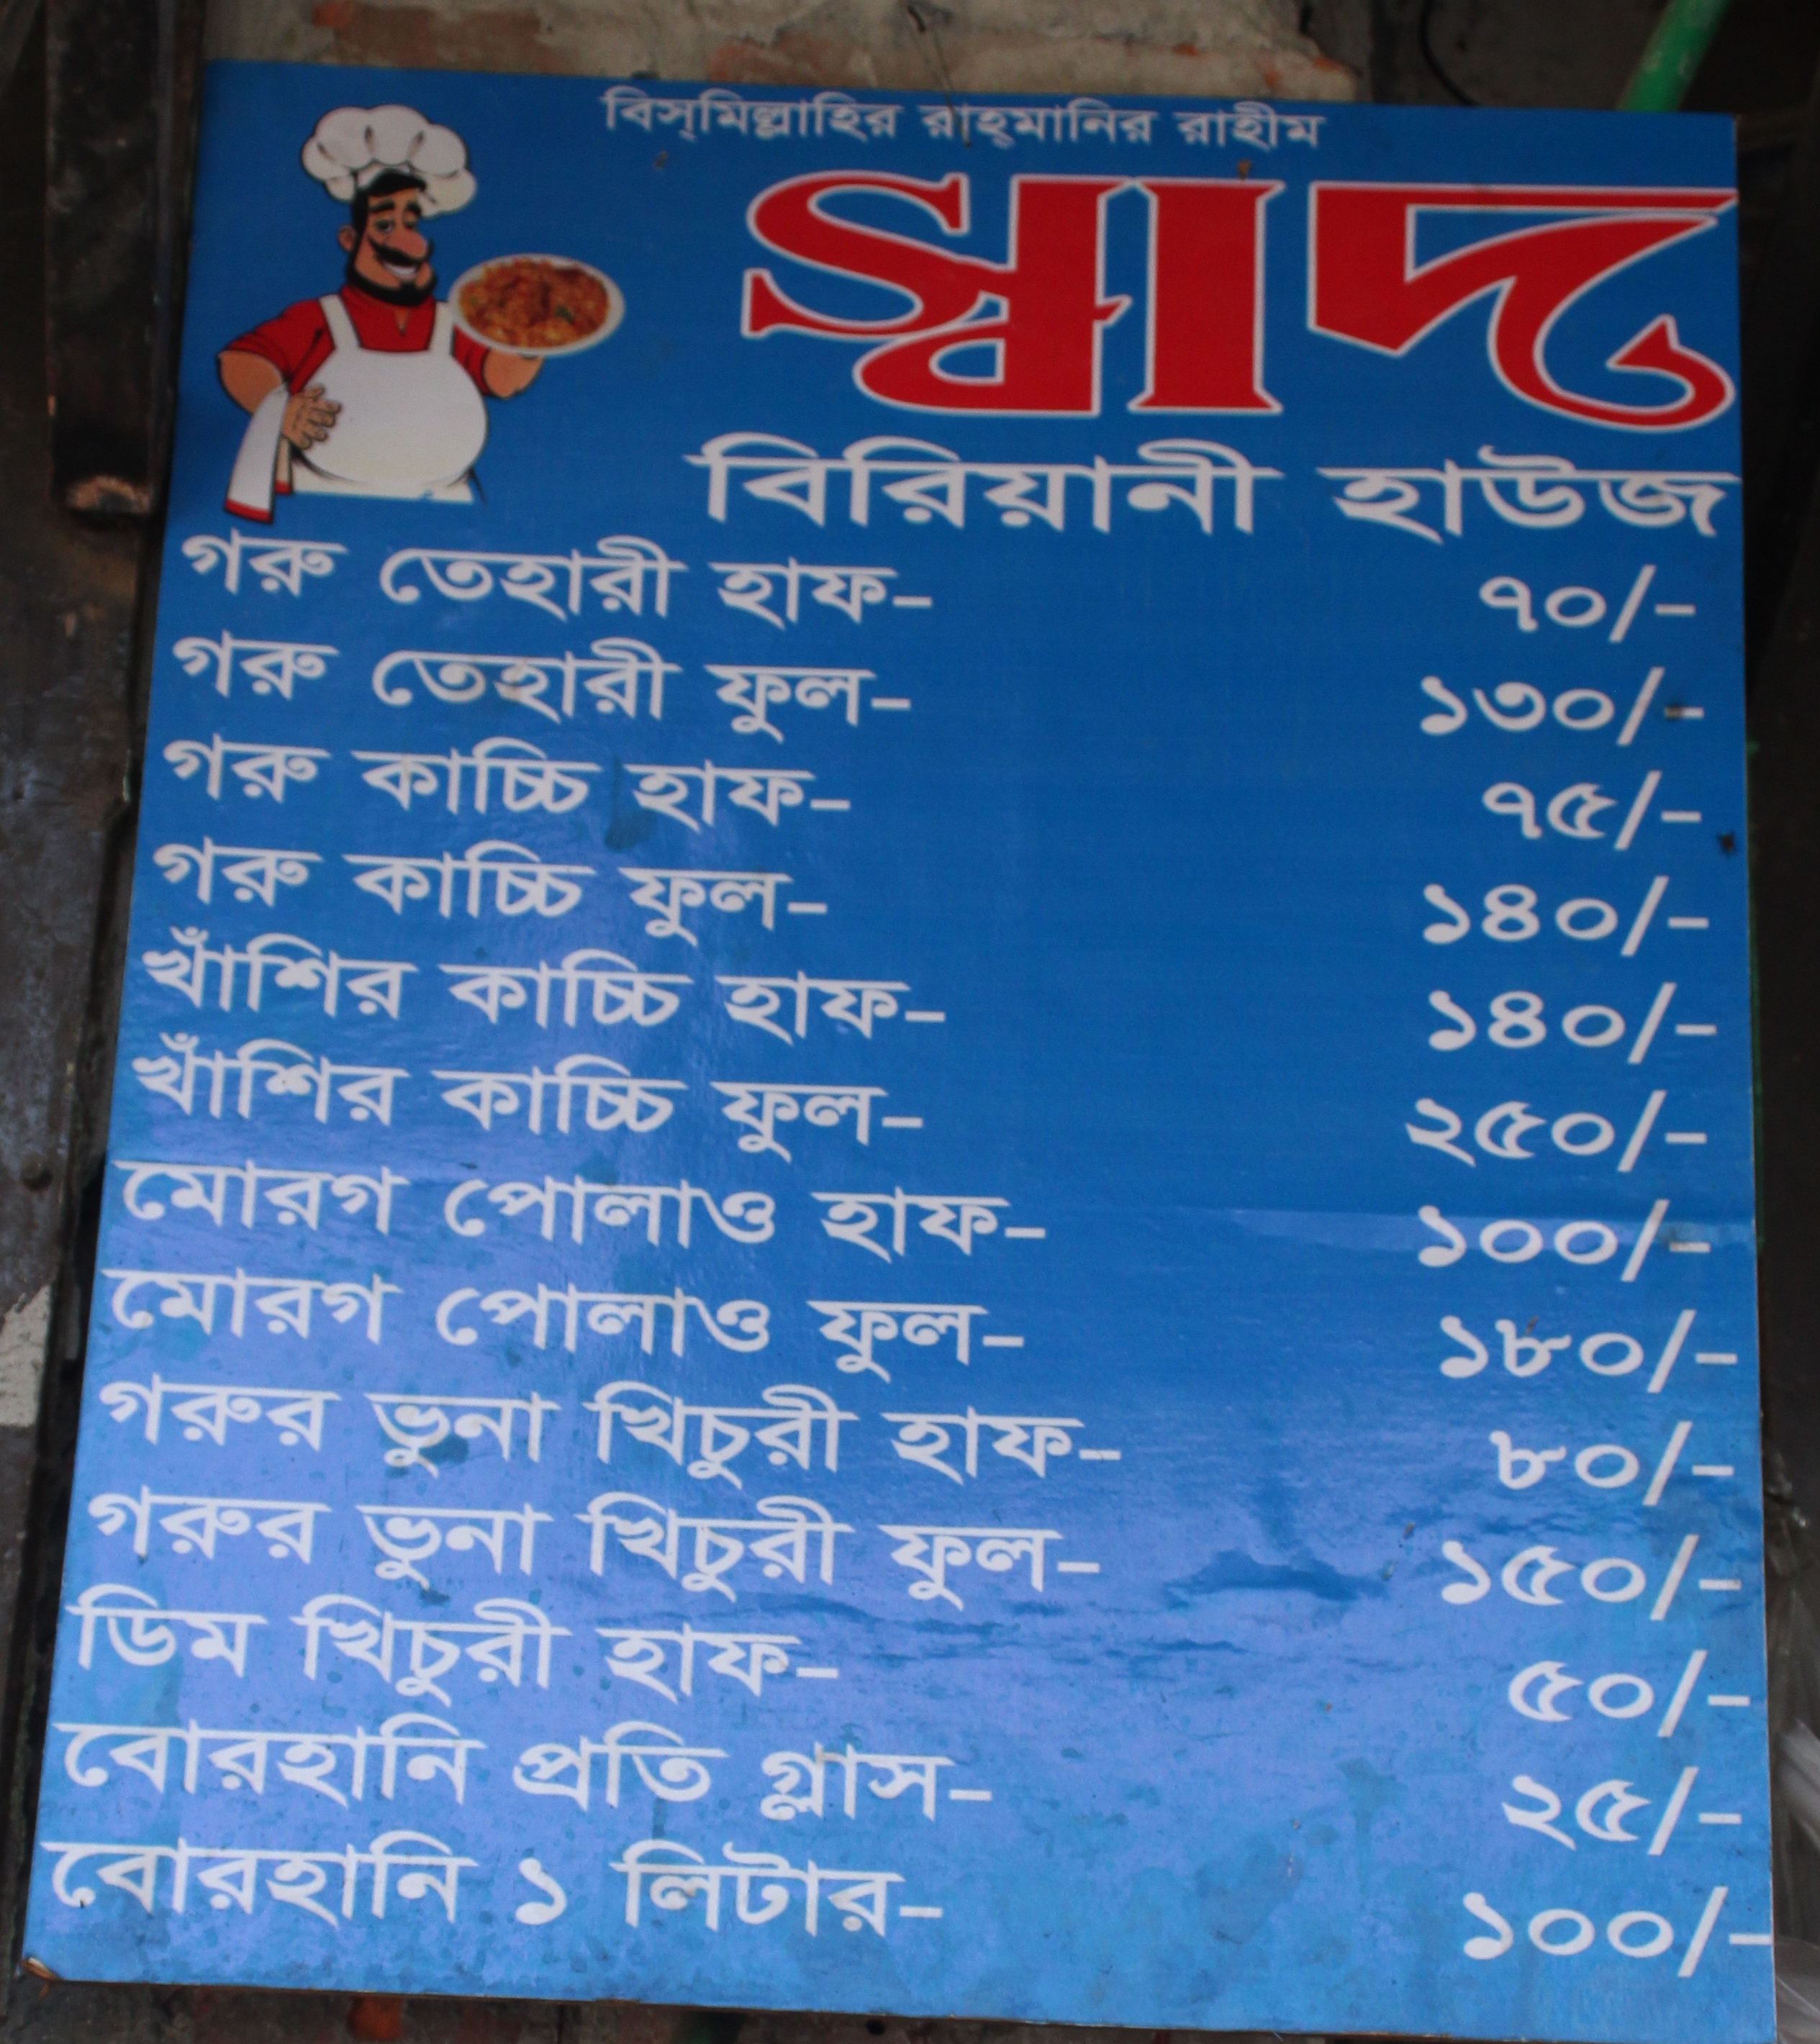 বিস্‌মিল্লাহির রাহ্‌মানির রাহীম
স্বাদ
বিরিয়ানী হাউজ
গরু তেহারী হাফ- ৭০/-
গরু তেহারী ফুল- ১৩০/-
গরু কাচ্চি হাফ- ৭৫/-
গরু কাচ্চি ফুল- ১৪০/-
খাঁশির কাচ্চি হাফ- ১৪০/-
খাঁশির কাচ্চি ফুল- ২৫০/-
মোরগ পোলাও হাফ- ১০০/-
মোরগ পোলাও ফুল- ১৮০/-
গরুর ভুনা খিচুরী হাফ- ৮০/-
গরুর ভুনা খিচুরী ফুল- ১৫০/-
ডিম খিচুরী হাফ- ৫০/-
বোরহানি প্রতি গ্লাস- ২৫/-
বোরহানি ১ লিটার- ১০০/-